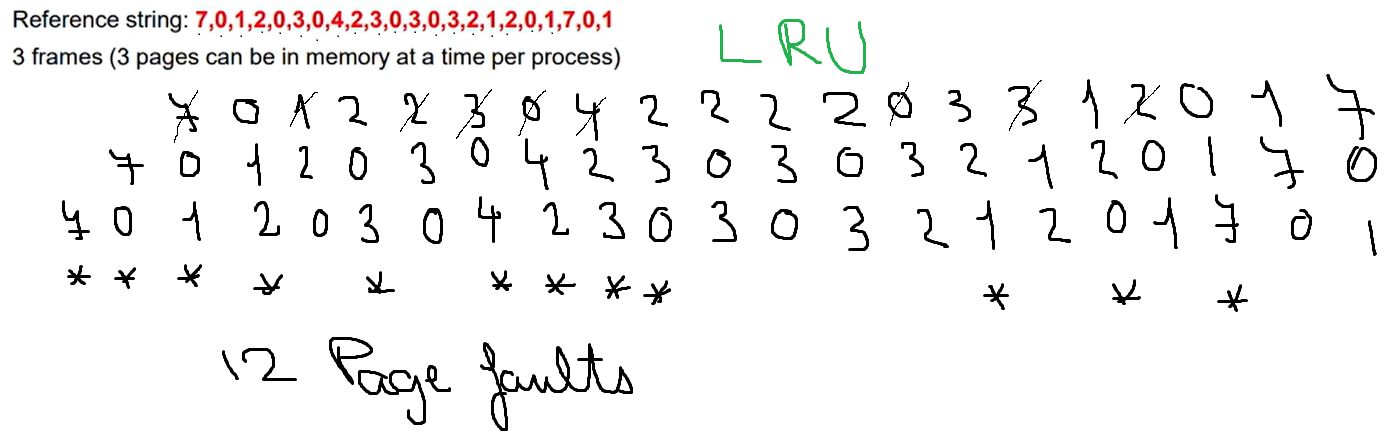 Reference string: 7,0,1,2,0,3,0,4,2,3,0,3,0,3,2,1,2,0,1,7,0,1
LRU
3 frames (3 pages can be in memory at a time per process)
7 0 1 2 2 3 0 4 2 2 2 2 0 3 3 1 2 0 1 7
7 0 1 2 0 3 0 4 2 3 0 3 0 3 2 1 2 0 1 7 0
7 0 1 2 0 3 0 4 2 3 0 3 0 3 2 1 2 0 1 7 0 1
* * * * * * * * * * * *
12 Page faults